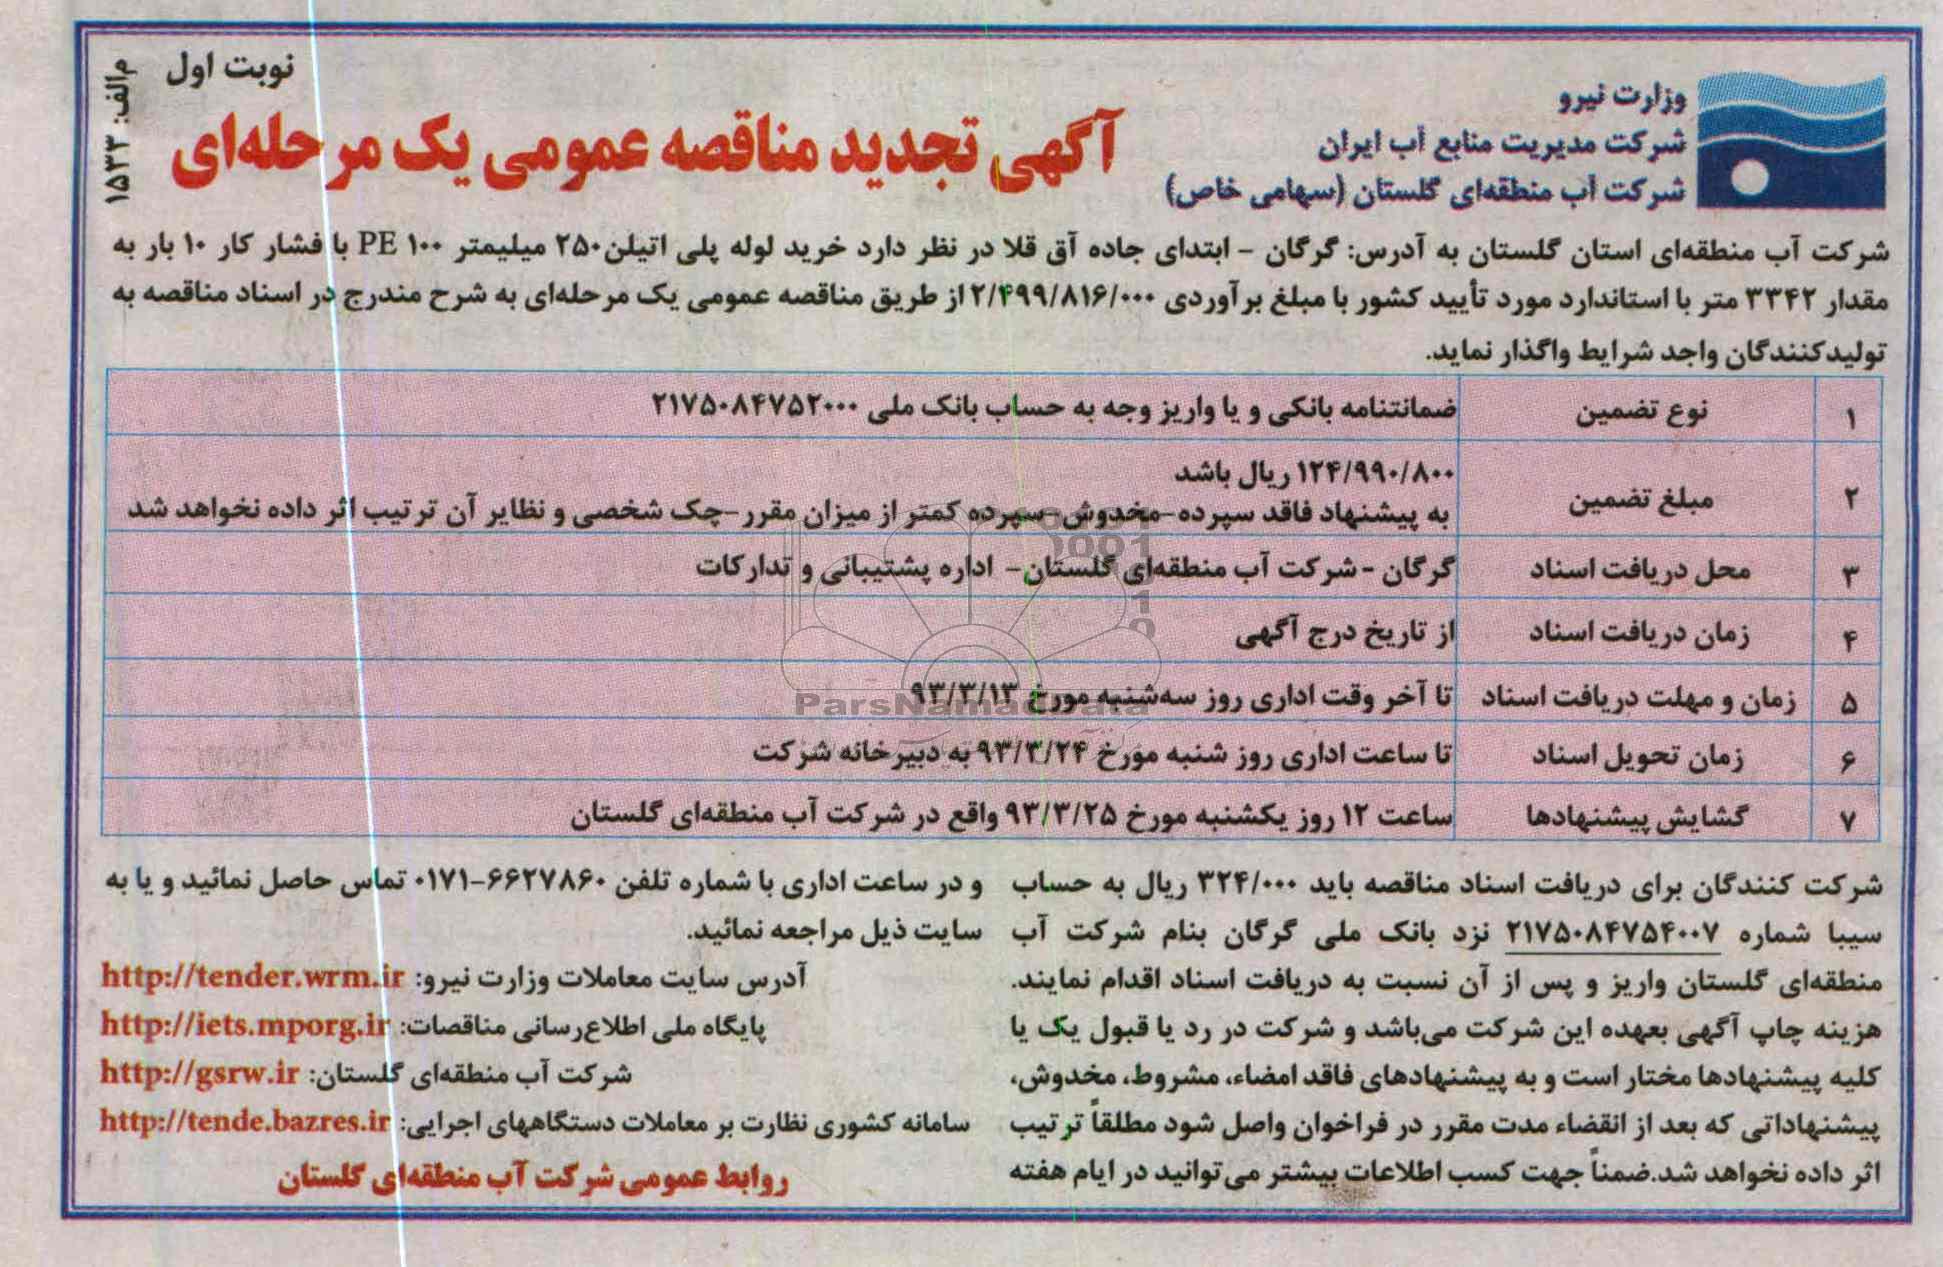 وزارت نیرو
شرکت مدیریت منابع آب ایران
شرکت آب منطقه‌ای گلستان (سهامی خاص)
نوبت اول
م‌الف: ۱۵۳۳
آگهی تجدید مناقصه عمومی یک مرحله‌ای
شرکت آب منطقه‌ای استان گلستان به آدرس: گرگان - ابتدای جاده آق قلا در نظر دارد خرید لوله پلی اتیلن۲۵۰ میلیمتر PE ۱۰۰ با فشار کار ۱۰ بار به
مقدار ۳۳۴۲ متر با استاندارد مورد تأیید کشور با مبلغ برآوردی ۲/۴۹۹/۸۱۶/۰۰۰ از طریق مناقصه عمومی یک مرحله‌ای به شرح مندرج در اسناد مناقصه به
تولیدکنندگان واجد شرایط واگذار نماید.
۱ نوع تضمین ضمانتنامه بانکی و یا واریز وجه به حساب بانک ملی ۲۱۷۵۰۸۴۷۵۲۰۰۰
۲ مبلغ تضمین ۱۲۴/۹۹۰/۸۰۰ ریال باشد
به پیشنهاد فاقد سپرده-مخدوش-سپرده کمتر از میزان مقرر-چک شخصی و نظایر آن ترتیب اثر داده نخواهد شد
۳ محل دریافت اسناد گرگان - شرکت آب منطقه‌ای گلستان- اداره پشتیبانی و تدارکات
۴ زمان دریافت اسناد از تاریخ درج آگهی
۵ زمان و مهلت دریافت اسناد تا آخر وقت اداری روز سه‌شنبه مورخ ۹۳/۳/۱۳
۶ زمان تحویل اسناد تا ساعت اداری روز شنبه مورخ ۹۳/۳/۲۴ به دبیرخانه شرکت
۷ گشایش پیشنهادها ساعت ۱۲ روز یکشنبه مورخ ۹۳/۳/۲۵ واقع در شرکت آب منطقه‌ای گلستان
ParsNamadData
شرکت کنندگان برای دریافت اسناد مناقصه باید ۳۲۴/۰۰۰ ریال به حساب
سیبا شماره ۲۱۷۵۰۸۴۷۵۴۰۰۷ نزد بانک ملی گرگان بنام شرکت آب
منطقه‌ای گلستان واریز و پس از آن نسبت به دریافت اسناد اقدام نمایند.
هزینه چاپ آگهی بعهده این شرکت می‌باشد و شرکت در رد یا قبول یک یا
کلیه پیشنهادها مختار است و به پیشنهادهای فاقد امضاء، مشروط، مخدوش،
پیشنهاداتی که بعد از انقضاء مدت مقرر در فراخوان واصل شود مطلقاً ترتیب
اثر داده نخواهد شد.ضمناً جهت کسب اطلاعات بیشتر می‌توانید در ایام هفته
و در ساعت اداری با شماره تلفن ۶۶۲۷۸۶۰-۰۱۷۱ تماس حاصل نمائید و یا به
سایت ذیل مراجعه نمائید.
آدرس سایت معاملات وزارت نیرو: http://tender.wrm.ir
پایگاه ملی اطلاع‌رسانی مناقصات: http://iets.mporg.ir
شرکت آب منطقه‌ای گلستان: http://gsrw.ir
سامانه کشوری نظارت بر معاملات دستگاههای اجرایی: http://tende.bazres.ir
روابط عمومی شرکت آب منطقه‌ای گلستان